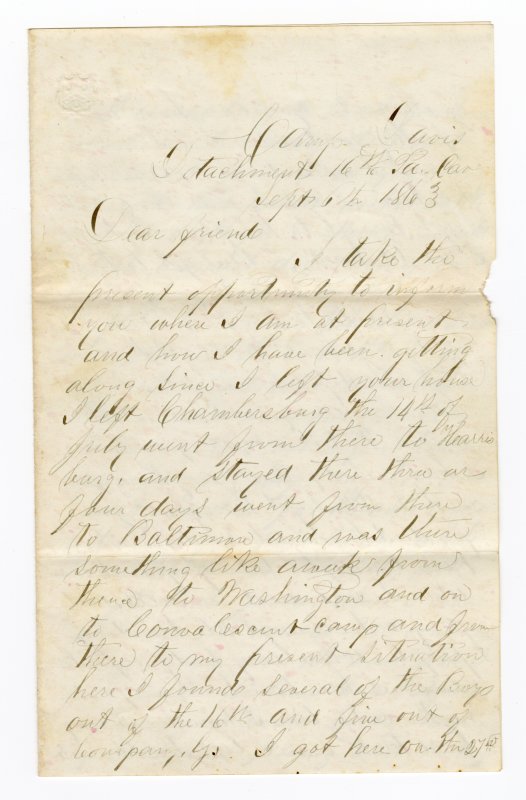 Camp Davis
Detachment 16th Pa. Cav
Sept 6th 1863
Dear friend
I take the
present opportunity to inform
you where I am at present
and how I have been getting
along since I left your house
I left Chambersburg the 14th of
July went from there to Harris
burg, and stayed there thre or
four days went from there
to Baltimore and was there
something like a week from
thence to Washington and on
to Convalescent camp and from
there to my present situation
here I found several of the Boys
out of the 16th and five out of
company, G. I got here on the 27th